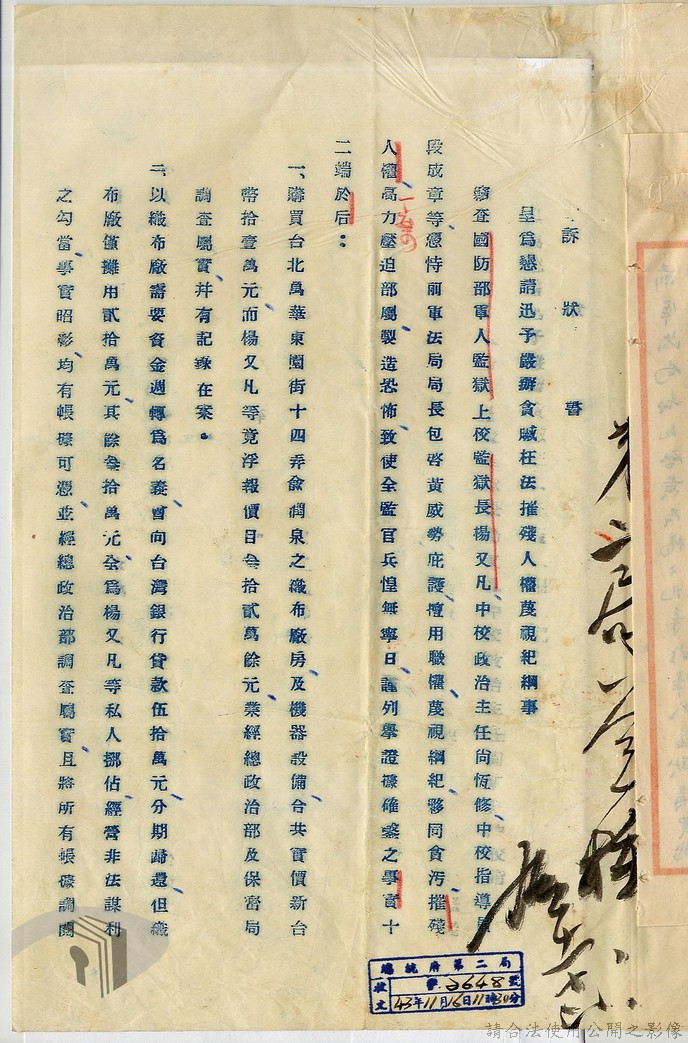 訴狀書
呈為懇請迅予嚴辦貪贓枉法摧殘人權蔑視紀綱事
竊查國防部軍人監獄上校監獄長楊又凡中校政治主任尚恆修中校指導員
段成章等憑恃前軍法局局長包啓黃威勢庇護擅用職權蔑視綱紀夥同貪污摧殘
人權高力壓迫部屬製造恐怖致使全監官兵惶無寧日謹列舉證據確鑿之事實十
二端於后：
一、購買台北萬華東園街十四弄俞潤泉之織布廠房及機器設備合共實價新台
幣拾壹萬元而楊又凡等竟浮報價目叁拾貳萬餘元業經總政治部及保密局
調查屬實幷有記錄在案。
二、以織布廠需要資金週轉為名義曾向台灣銀行貸款伍拾萬元分期歸還但織
布廠僅攤用貳拾萬元其餘叁拾萬元全為楊又凡等私人挪佔經營非法謀利
之勾當事實昭彰均有帳據可憑並經總政治部調查屬實且將所有帳據調閱
總統府第二局
收文 2648號
43年11月16日11時30分
請合法使用公開之影像